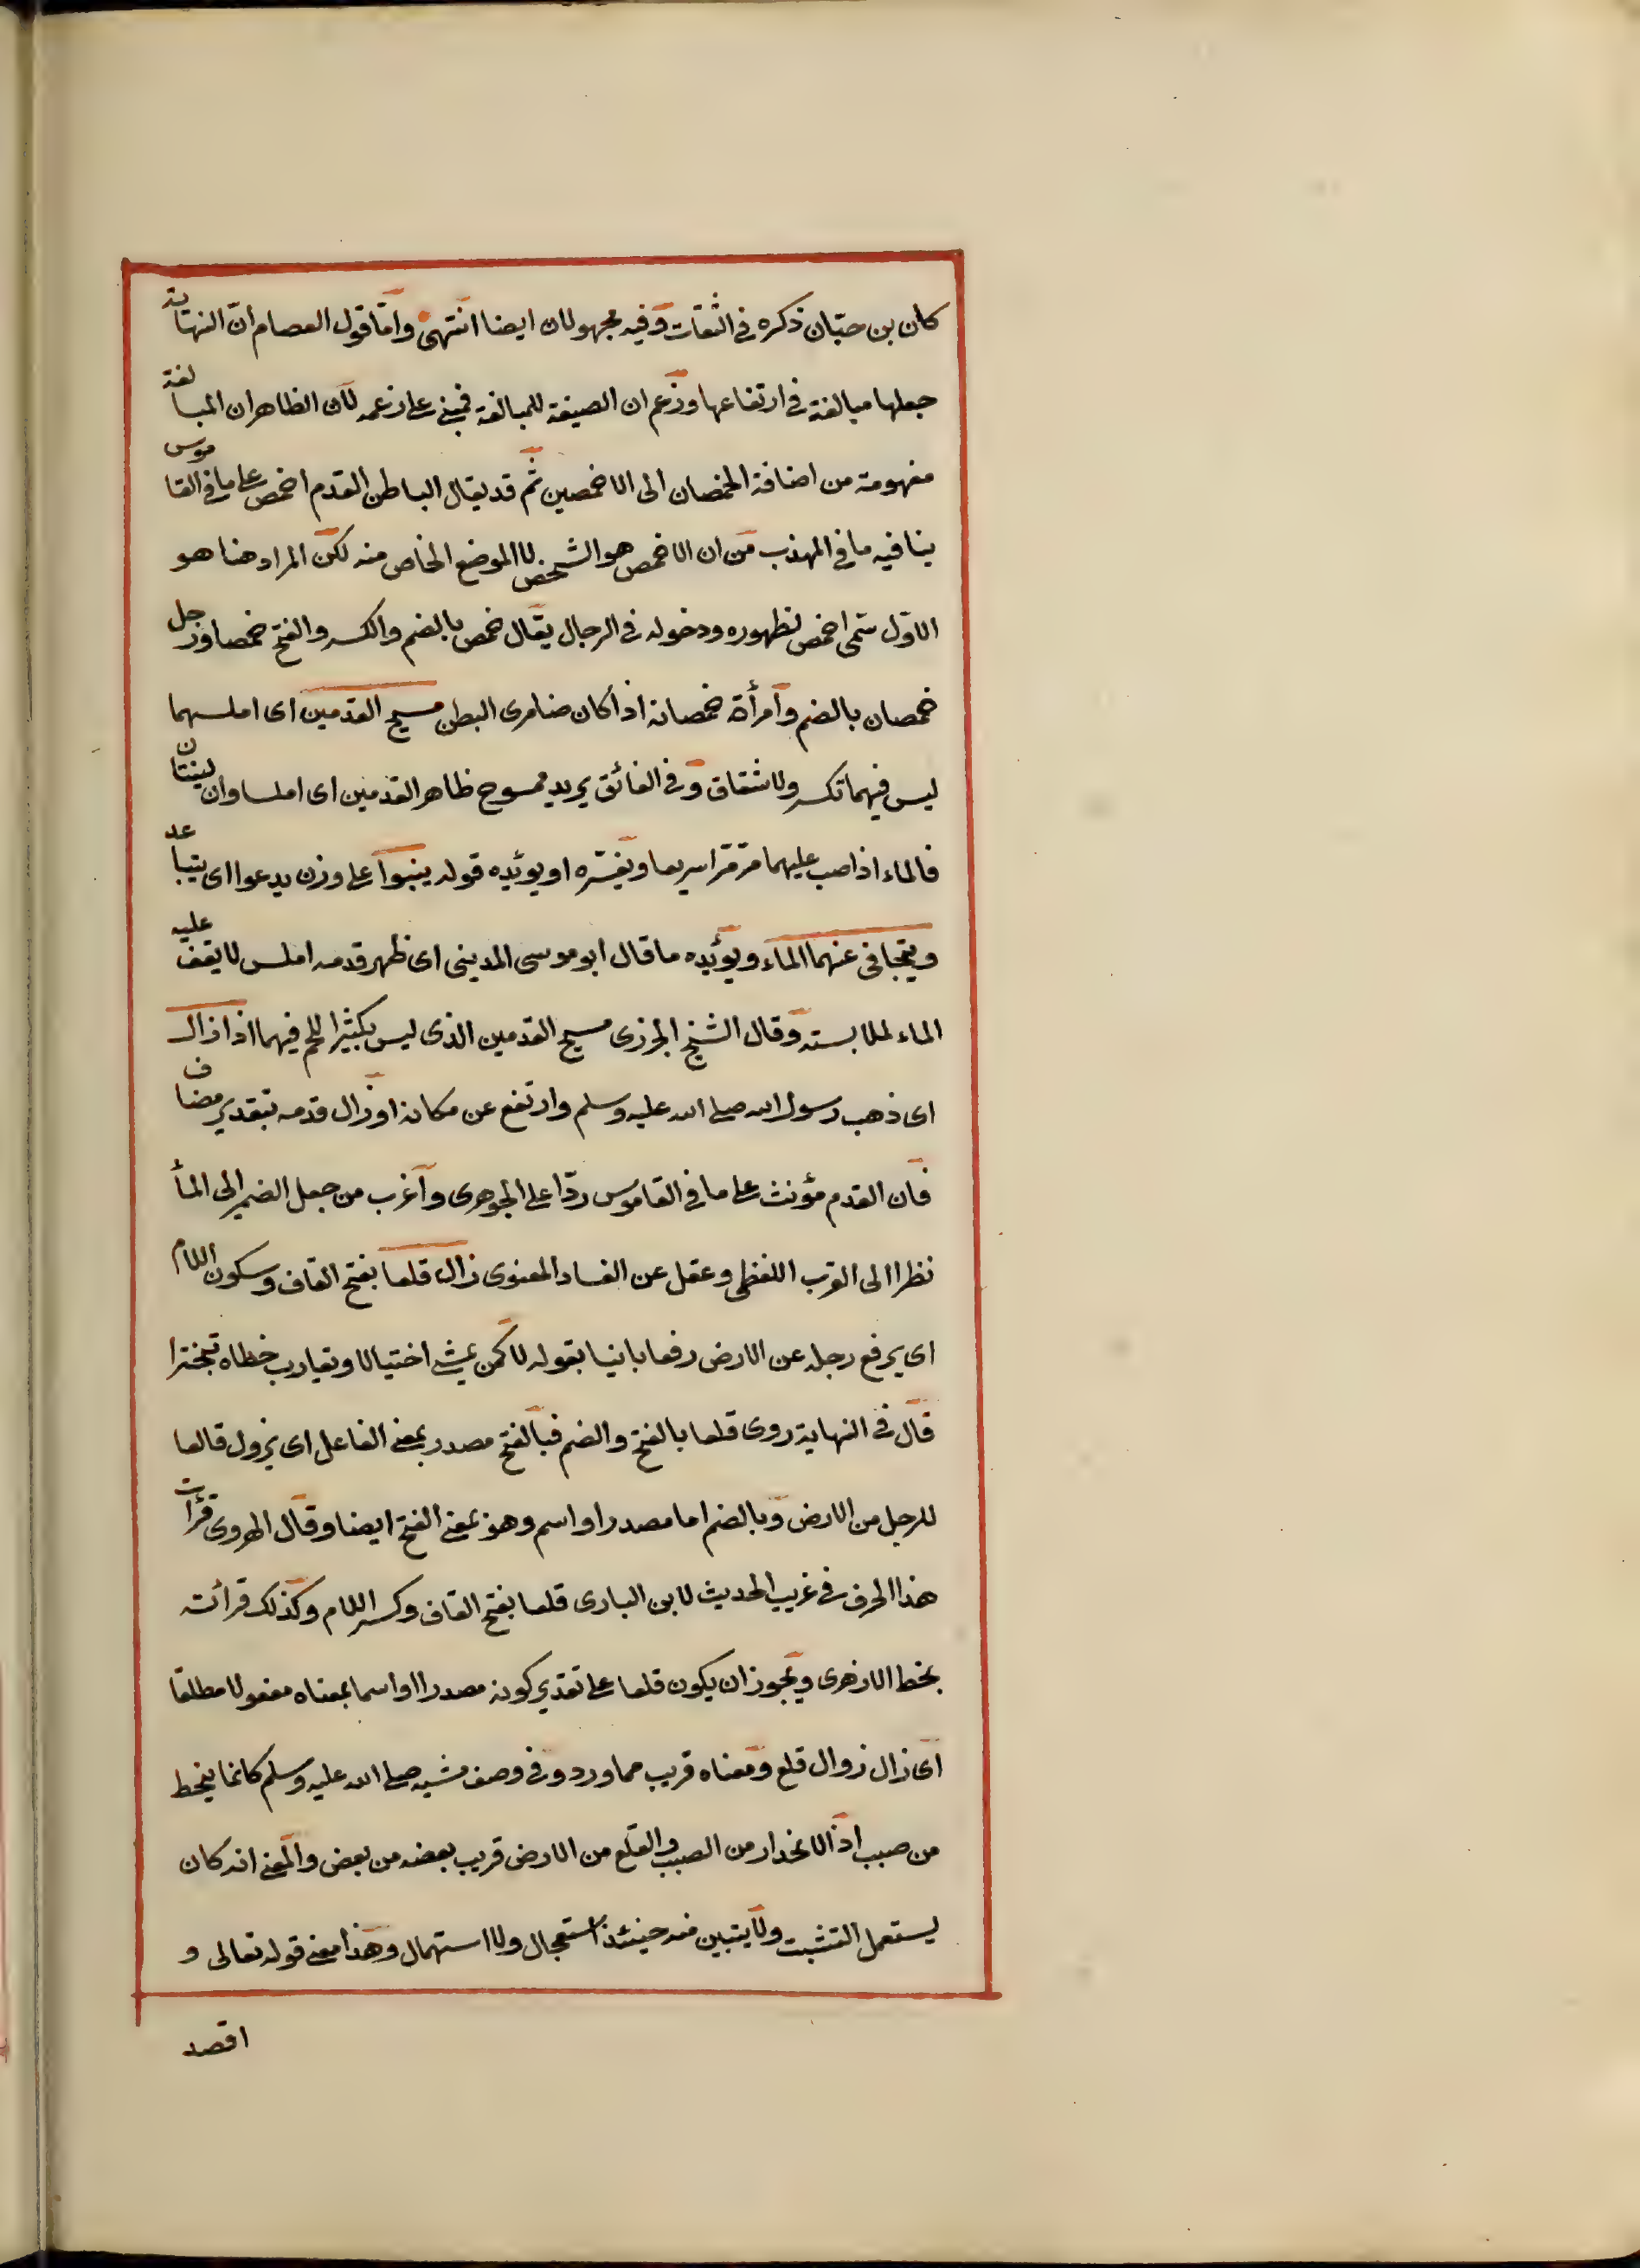 كان بن حبّان ذكره فى الثقات وفيه مجهولان ايضا انتهى وامّا قول العصام انّ النهاية
جعلها مبالغة فى ارتفاعها وزعم ان الصيغة للمبالغة فمبنى على زعمه لان الظاهر ان المبالغة
مفهومة من اضافة الخمصان الى الاخمصين ثم قد يقال الباطن القدم اخمص على ما فى القاموس
ينافيه ما فى المهذب من ان الاخمص هو الشخص لا الموضع الخاص منه لكن المراد هنا هو
الاوّل سمّى اخمص لظهوره ودخوله فى الرجال يقال خمص بالضم والكسر والفتح خمصا ورجل
خمصان بالضم وامرأة خمصانة اذا كان ضامرى البطن مسيح القدمين اى املسهما
ليس فيهما تكسر ولا شقاق وفى الفائق يريد ممسوح ظاهر القدمين اى املسا وان لينتان
فالماء اذا صب عليهما مرّ مرّا سريعا ويفسّره او يويّده قوله ينبوا على وزن يدعوا اى يتباعد
ويتجافى عنهما الماء ويوئده ما قال ابو موسى المدينى اى ظهر قدمه املس لا يقف عليه
الماء لملابسته وقال الشيخ الجزرى مسيح القدمين الذى ليس بكثير اللحم فيهما اذا زال
اى ذهب رسول الله صلى الله عليه وسلم وارتفع عن مكانه او زال قدمه بتقدير مضاف
فان القدم مؤنث على ما فى القاموس ردّا على الجوهرى واغرب من جعل الضمير الى المأ
نظرا الى القرب اللفظى وعقل عن الفساد المعنوى زال قلعا بفتح القاف وسكون اللام
اى يرفع رجله عن الارض رفعا باينيا بقوله لا كمن يمشى اختيالا وتقارب خطاه تبخترا
قال فى النهاية روى قلعا بالفتح والضم فبالفتح مصدر بمعنى الفاعل اى يزول قالعا
للرجل من الارض وبالضم اما مصدر او اسم وهو بمعنى الفتح ايضا وقال الهروى قرأت
هذا الحرف فى غريب الحديث لابن البارى قلعا بفتح القاف وكسر اللام وكذلك قرائته
بخط الازهرى ويجوز ان يكون قلعا على تقدير كونه مصدرا او اسما بمعناه مفعولا مطلقا
اى زال زوال قلع ومعناه قريب مما ورد وفى وصف مشيه صلى الله عليه وسلم كانما ينحط
من صبب اذ الانحدار من الصبب والقلع من الارض قريب بعضه من بعض والمعنى انه كان
يستعمل التثبت ولا يتبين منه حينئذ استعجال ولا استمهال وهذا معنى قوله تعالى و
اقصد